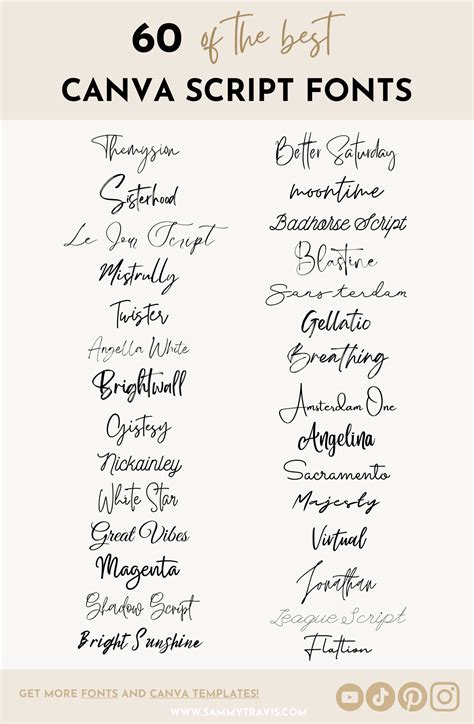 60 of the best
CANVA SCRIPT FONTS
Themysion
Sisterhood
Le Jour Script
Mistrully
Twister
Angella White
Brightwall
Gistesy
Nickainley
White Star
Great Vibes
Magenta
Shadow Script
Bright Sunshine
Better Saturday
moontime
Badhorse Script
Blastine
Sans-terdam
Gellatio
Breathing
Amsterdam One
Angelina
Sacramento
Majesty
Virtual
Jonathan
League Script
Flattion
GET MORE FONTS AND CANVA TEMPLATES!
WWW.SAMMYTRAVIS.COM